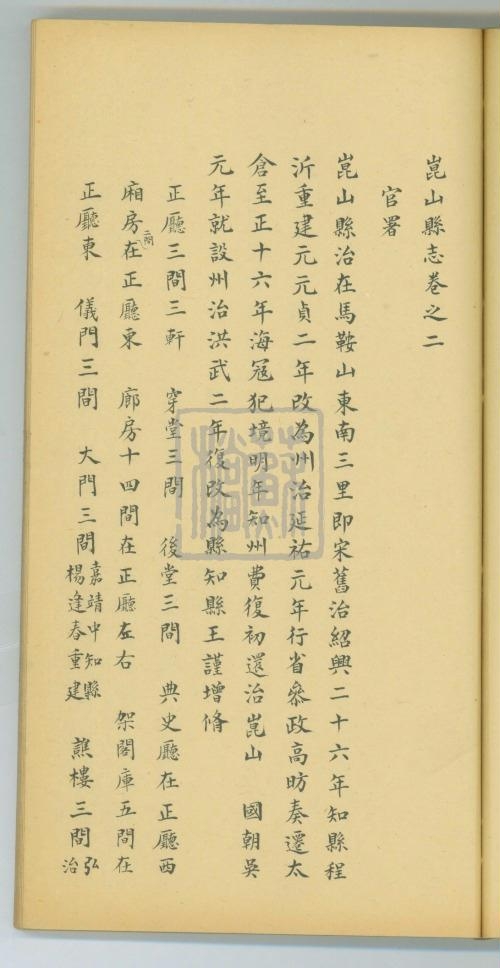 崑山縣志卷之二
官署
崑山縣治在馬鞍山東南三里即宋舊治紹興二十六年知縣程
沂重建元元貞二年改為州治延祐元年行省叅政高昉奏遷太
倉至正十六年海冦犯境明年知州費復初還治崑山 國朝吳
元年就設州治洪武二年復改為縣知縣王謹增脩
正廳三間三軒 穿堂三間 後堂三間 典史廳在正廳西
廂房二間在正廳東 廊房十四間在正廳左右 架閣庫五間在
正廳東 儀門三間 大門三間嘉靖中知縣楊逢春重建 譙樓三間弘治